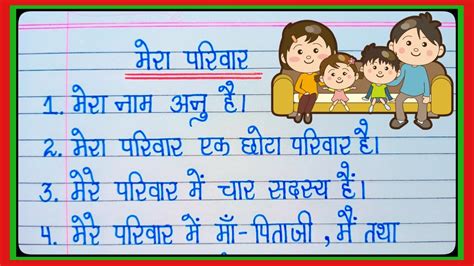 मेरा परिवार
1. मेरा नाम अनु है।
2. मेरा परिवार एक छोटा परिवार है।
3. मेरे परिवार में चार सदस्य हैं।
4. मेरे परिवार में माँ-पिताजी, मैं तथा